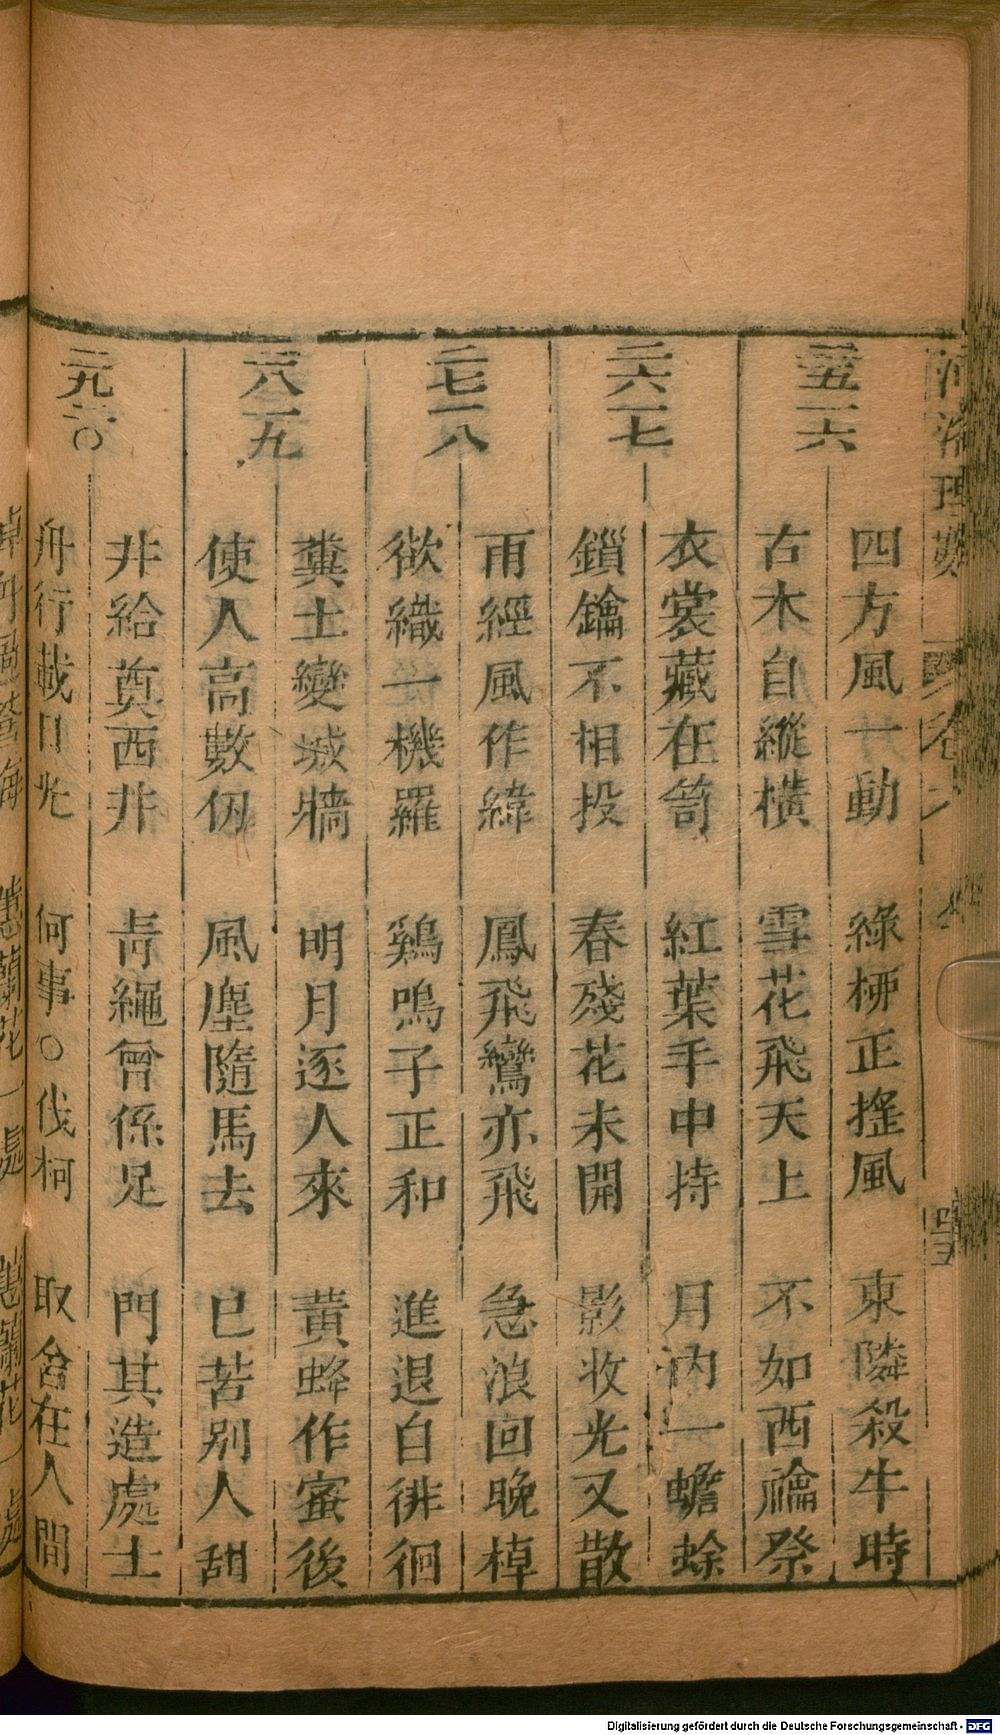 河洛理數
卷六
二五 一六
四方風一動 綠栁正搖風 東隣殺牛時
古木自縱橫 雪花飛天上 不如西禴祭
二六 一七
衣裳藏在笥 紅葉手中持 月內一蟾蜍
鎖鑰不相投 春殘花未開 影收光又散
二七 一八
雨經風作緯 鳳飛鸞亦飛 急浪回晚棹
欲織一機羅 鷄鳴子正和 進退自徘徊
二八 一九
糞土變城牆 明月逐人來 黃蜂作蜜後
使人高數仞 風塵隨馬去 已苦別人甜
二九 二〇
非給奠西非 青繩曾係足 門其造處士
舟行載月光 何事○伐柯 取舍在人間
蕙蘭花 一處 蕙蘭花 一處
Digitalisierung gefördert durch die Deutsche Forschungsgemeinschaft - DFG